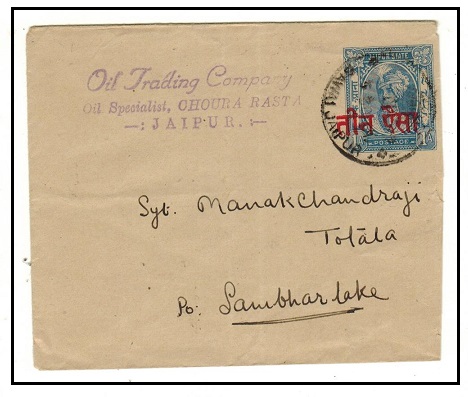 Oil Trading Company
Oil Specialist, CHOURA RASTA
—: JAIPUR. :—
तीन पैसा
POSTAGE
JAIPUR
Syt. Manakchandraji
Totala
Po: Sambharlake